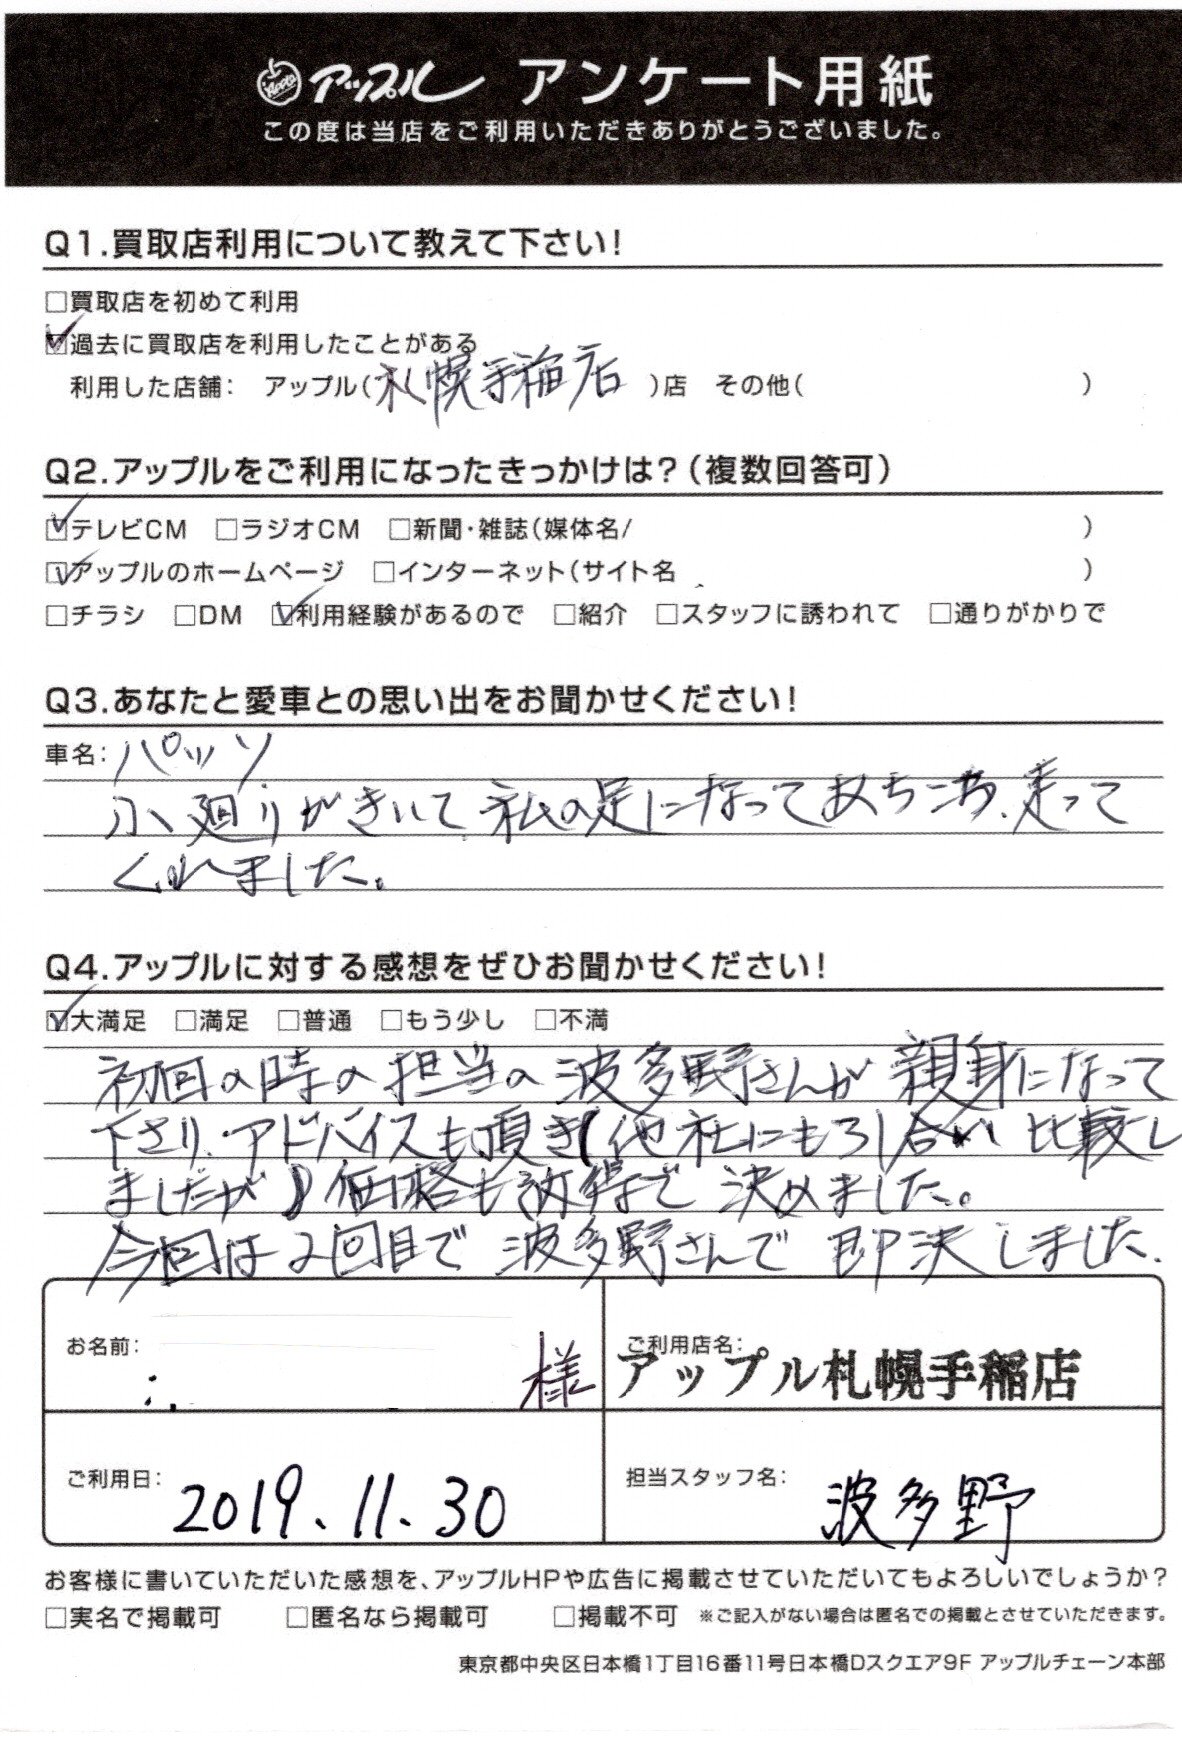 アップル アンケート用紙
この度は当店をご利用いただきありがとうございました。
Q1.買取店利用について教えて下さい!
□買取店を初めて利用
☑過去に買取店を利用したことがある
利用した店舗: アップル(札幌手稲店)店 その他( )
Q2.アップルをご利用になったきっかけは?(複数回答可)
☑テレビCM □ラジオCM □新聞・雑誌(媒体名/ )
☑アップルのホームページ □インターネット(サイト名 )
□チラシ □DM ☑利用経験があるので □紹介 □スタッフに誘われて □通りがかりで
Q3.あなたと愛車との思い出をお聞かせください!
車名: パッソ
小廻りがきいて、私の足になってあちこち、走って
くれました。
Q4.アップルに対する感想をぜひお聞かせください!
☑大満足 □満足 □普通 □もう少し □不満
初回の時の担当の波多野さんが親身になって
下さり、アドバイスも頂き(他社にもろし合い比較し
ましたが)価格も納得で決めました。
今回は2回目で波多野さんで即決しました.
お名前: 様
ご利用店名:
アップル札幌手稲店
ご利用日: 2019.11.30
担当スタッフ名: 波多野
お客様に書いていただいた感想を、アップルHPや広告に掲載させていただいてもよろしいでしょうか?
□実名で掲載可 □匿名なら掲載可 □掲載不可 ※ご記入がない場合は匿名での掲載とさせていただきます。
東京都中央区日本橋1丁目16番11号日本橋Dスクエア9F アップルチェーン本部